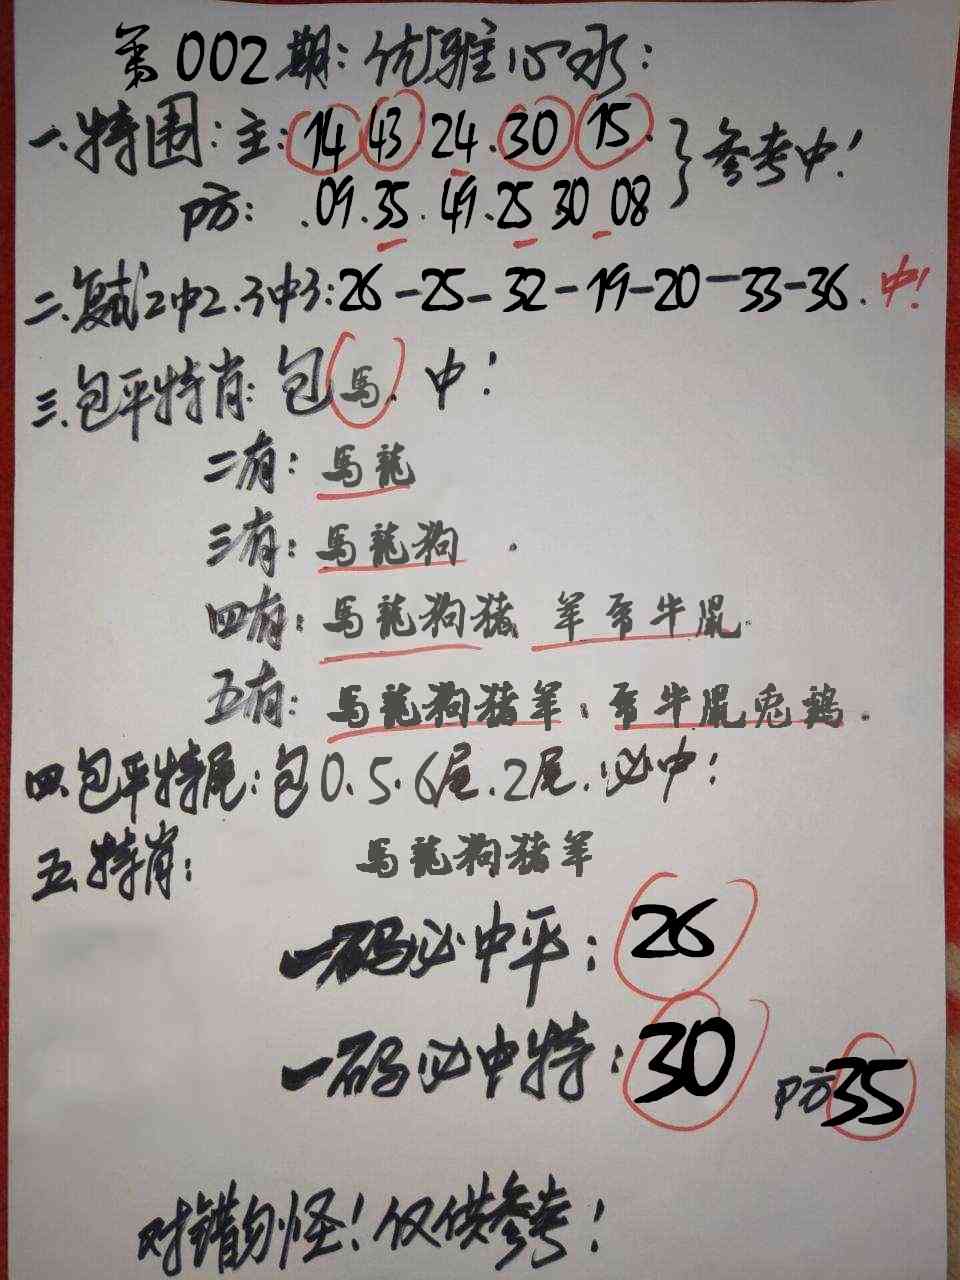 第002期:优雅心水:
一.特围:主:14 43.24.30 15. }参考中!
防:.09.35.49.25 30 08
二.复试2中2.3中3:26-25-32-19-20-33-36.中!
三.包平特肖:包馬.中!
二有:馬龍
三有:馬龍狗.
四有:馬龍狗猪 羊 牛鼠.
五有:馬龍狗猪羊: 牛鼠兎鷄.
四.包平特尾:包0.5.6尾.2尾.必中!
五.特肖:馬龍狗猪羊
一码必中平:26
一码必中特:30 防35
对错勿怪!仅供参考!